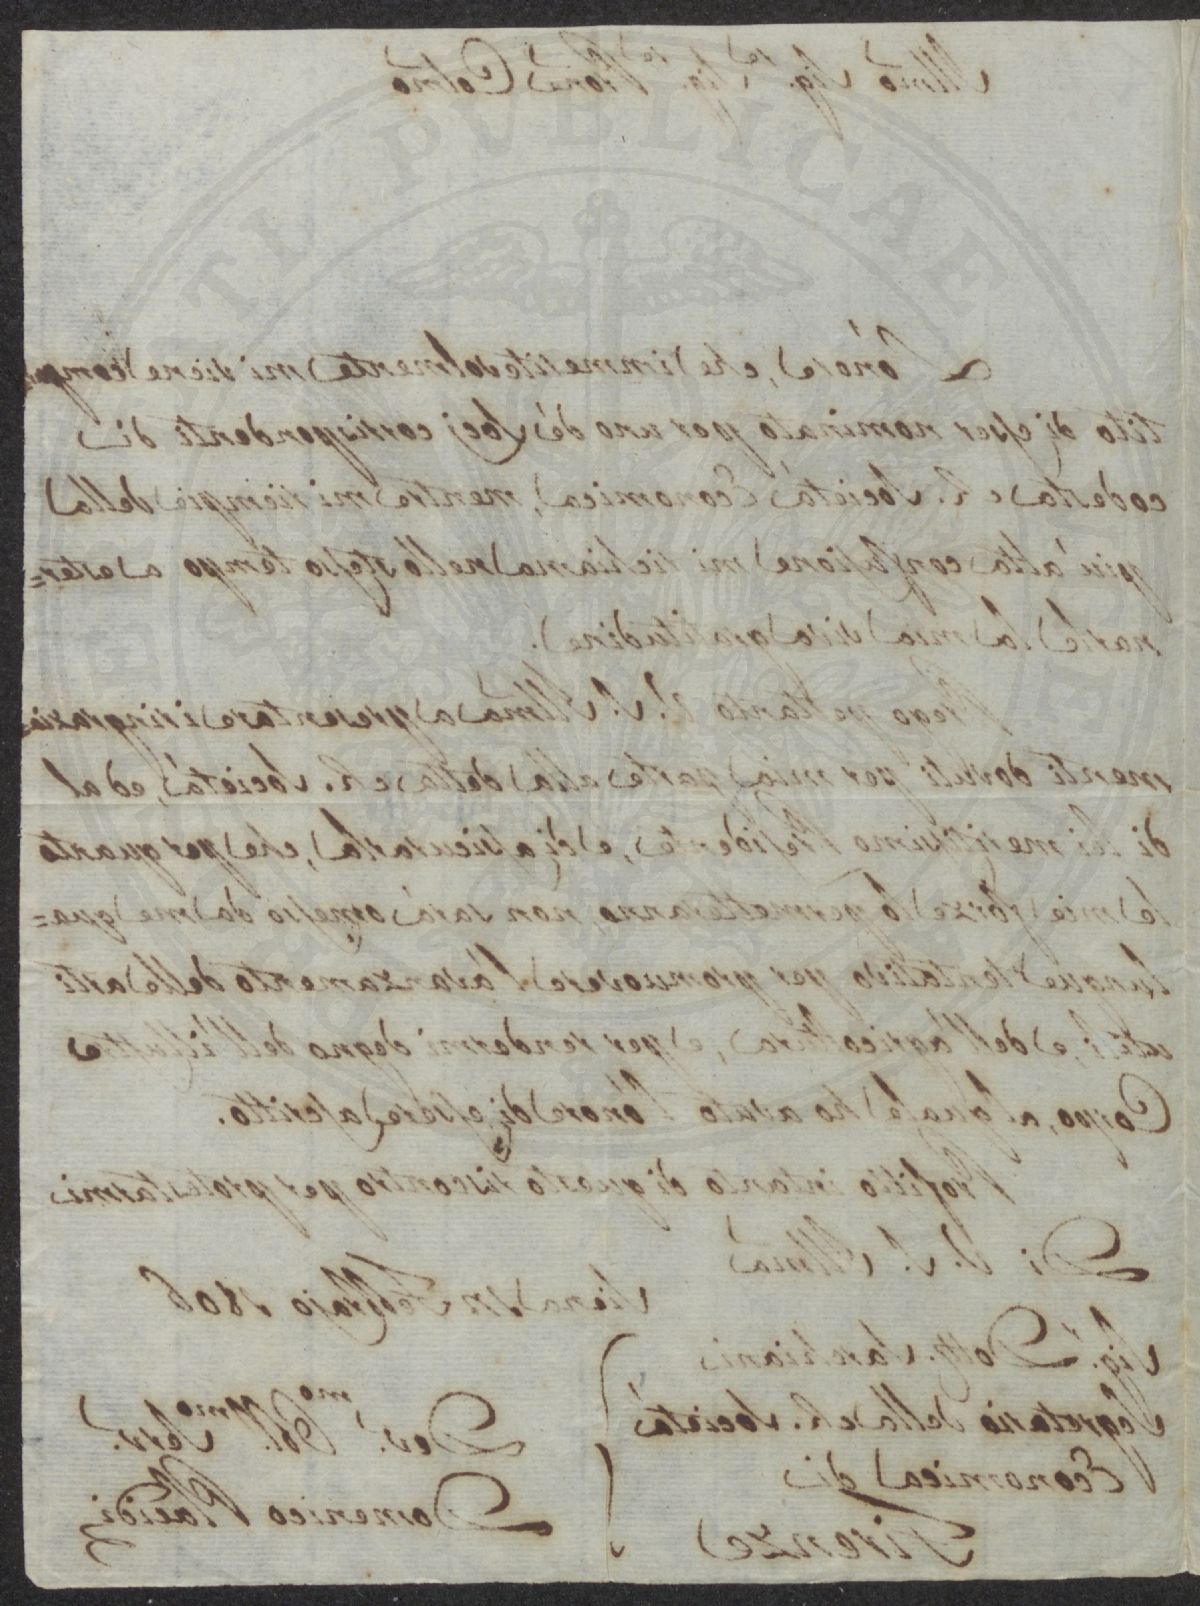 Illmo Sig.re Sig.re Prone Colmo
L'onore, che immeritevolmente mi viene compar
tito di esser nominato per uno dè Socj corrispondenti di
codesta R. Società Economica, mentre mi riempie della
più alta confusione mi richiama nello stesso tempo a ester=
narle la mia viva gratitudine.
Prego pertanto V. S. Illma a presentare i ringrazia=
menti dovuti per mia parte alla detta R. Società, ed al
di lei meritissimo Presidente, e di assicurarla, che per quanto
le mie forze lo permetteranno, non sarà omesso da me qua=
lunque tentativo per promuovere l'avanzamento delle arti
utili, e dell'agricoltura, e per rendermi degno dell'illustre
Corpo, al quale ho avuto l'onore di essere ascritto.
Profitto intanto di questo riscontro per protestarmi
Di V. S. Illma
Siena Febbrajo 1806
Sig.r Dott. Sarchiani
Segretario della R. Società
Economica di
Firenze
Dev.mo Obl.mo Serv.e
Domenico Placidi
PUBLICAE